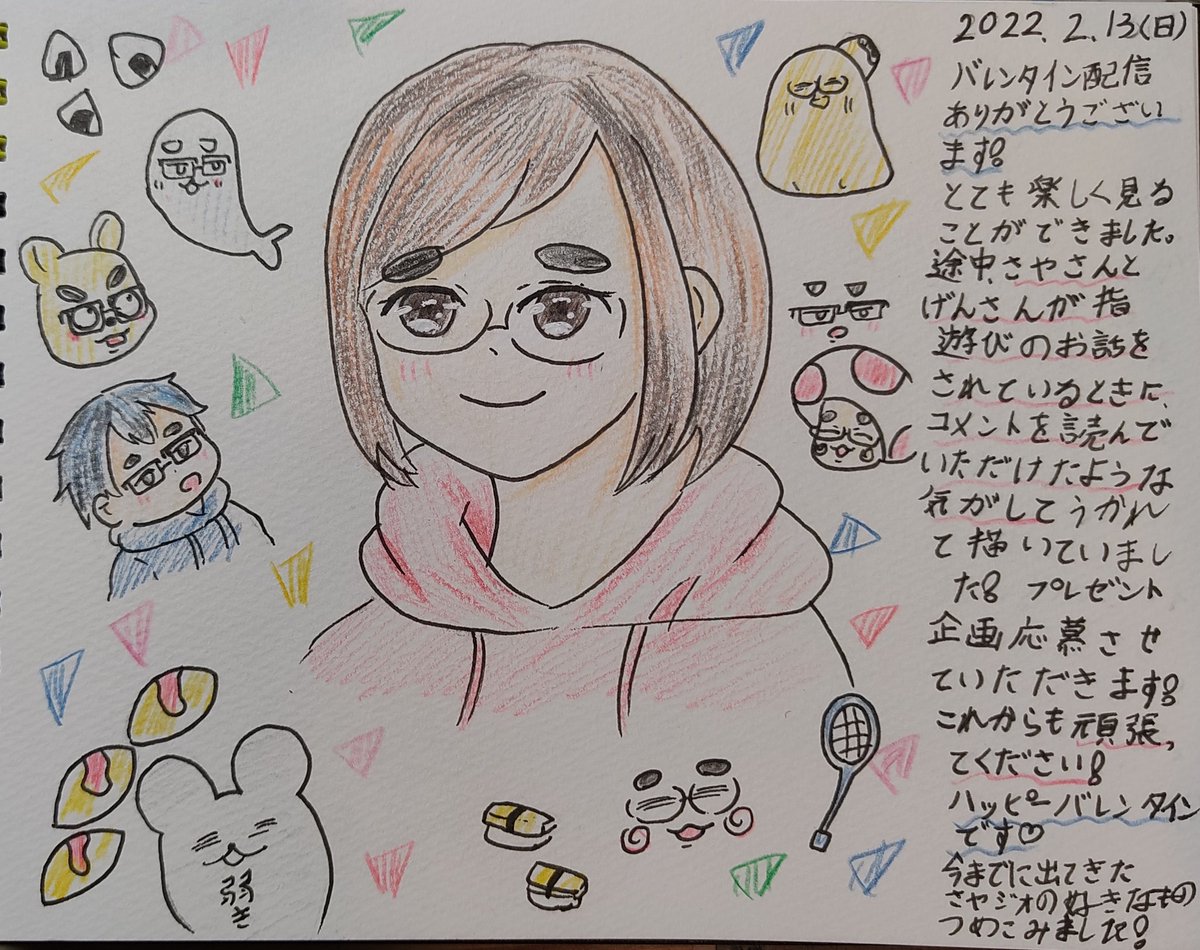 2022.2.13(日)
バレンタイン配信
ありがとうござい
ます!
とても楽しく見る
ことができました。
途中、さやさんと
げんさんが指
遊びのお話を
されているときに、
コメントを読んで
いただけたような
気がしてうかれ
て描いていまし
た! プレゼント
企画応募させ
ていただきます!
これからも頑張っ
てください!
ハッピーバレンタイン
です♡
今までに出てきた
さやジオの好きなもの
つめこみました!
弱き